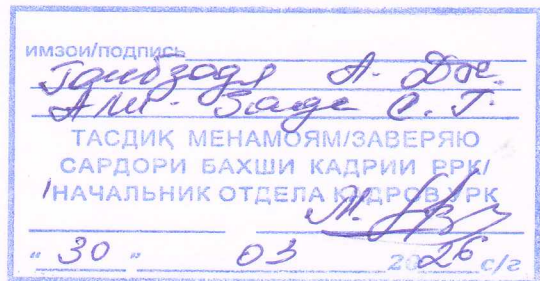 имзои/подпись
Гоибзода А. Дж.
Али-Заде С. Г.
ТАСДИҚ МЕНАМОЯМ/ЗАВЕРЯЮ
САРДОРИ БАХШИ КАДРИИ РРК/
НАЧАЛЬНИК ОТДЕЛА КАДРОВ УРК
" 30 " 03 2026 с/г